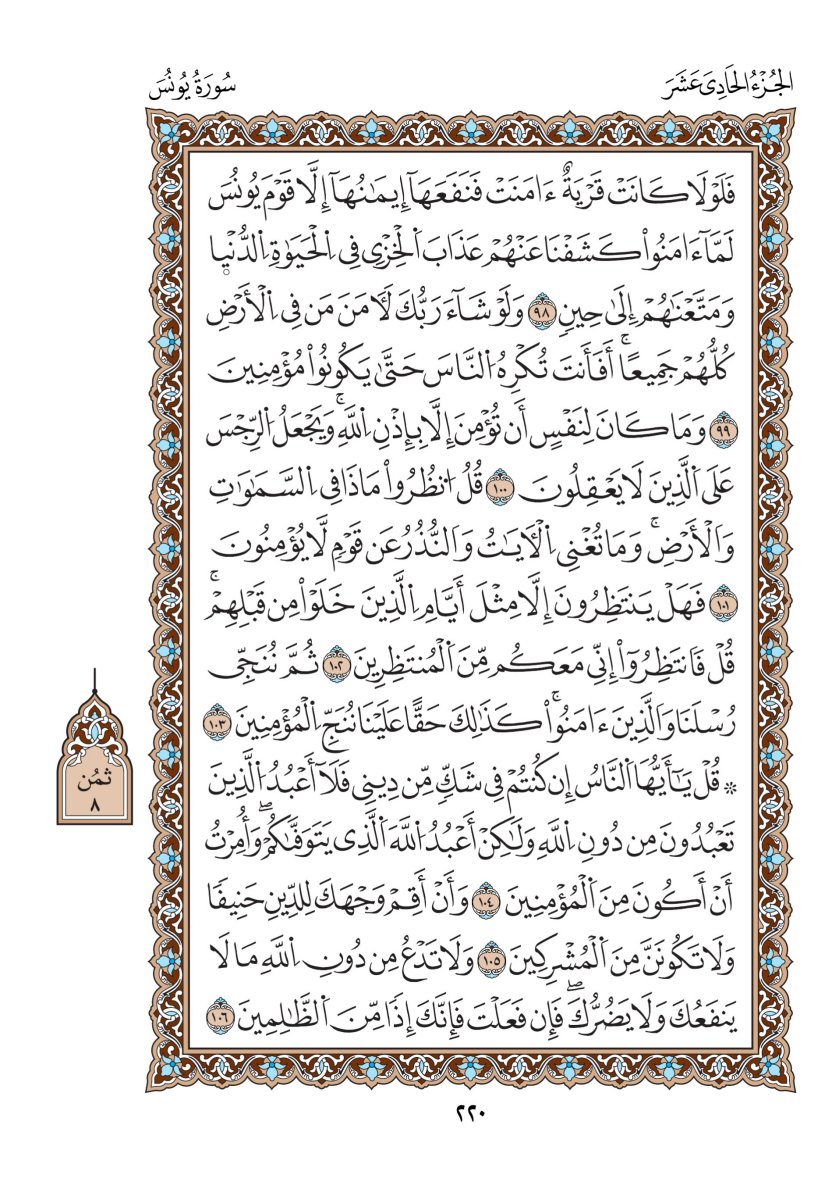 الجُزْءُ الحَادِىَ عَشَرَ
سُورَةُ يُونُسَ
فَلَوْلَا كَانَتْ قَرْيَةٌ ءَامَنَتْ فَنَفَعَهَآ إِيمَٰنُهَآ إِلَّا قَوْمَ يُونُسَ
لَمَّآ ءَامَنُواْ كَشَفْنَا عَنْهُمْ عَذَابَ اَ۬لْخِزْيِ فِي اِ۬لْحَيَوٰةِ اِ۬لدُّنْي۪ا
وَمَتَّعْنَٰهُمْ إِلَىٰ حِينٖ ٩٨ وَلَوْ شَآءَ رَبُّكَ لَأٓمَنَ مَن فِي اِ۬لْأَرْضِ
كُلُّهُمْ جَمِيعًاۚ أَفَأَنتَ تُكْرِهُ اُ۬لنَّاسَ حَتَّىٰ يَكُونُواْ مُؤْمِنِينَ
٩٩ وَمَا كَانَ لِنَفْسٍ أَن تُؤْمِنَ إِلَّا بِإِذْنِ اِ۬للَّهِۚ وَيَجْعَلُ اُ۬لرِّجْسَ
عَلَى اَ۬لَّذِينَ لَا يَعْقِلُونَ ١٠٠ قُلُ اُ۟نظُرُواْ مَاذَا فِي اِ۬لسَّمَٰوَٰتِ
وَالْأَرْضِۚ وَمَا تُغْنِي اِ۬لْأٓيَٰتُ وَالنُّذُرُ عَن قَوْمٖ لَّا يُؤْمِنُونَ
١٠١ فَهَلْ يَنتَظِرُونَ إِلَّا مِثْلَ أَيَّامِ اِ۬لَّذِينَ خَلَوْاْ مِن قَبْلِهِمْۚ
قُلْ فَانتَظِرُوٓاْ إِنِّي مَعَكُم مِّنَ اَ۬لْمُنتَظِرِينَ ١٠٢ ثُمَّ نُنَجِّي
رُسْلَنَا وَالَّذِينَ ءَامَنُواْۚ كَذَٰلِكَ حَقًّا عَلَيْنَا نُنَجِّ اِ۬لْمُؤْمِنِينَ ١٠٣
۞ قُلْ يَٰٓأَيُّهَا اَ۬لنَّاسُ إِن كُنتُمْ فِي شَكّٖ مِّن دِينِي فَلَا أَعْبُدُ اُ۬لَّذِينَ
تَعْبُدُونَ مِن دُونِ اِ۬للَّهِ وَلَٰكِنْ أَعْبُدُ اُ۬للَّهَ اَ۬لَّذِي يَتَوَفَّىٰكُمْۖ وَأُمِرْتُ
أَنْ أَكُونَ مِنَ اَ۬لْمُؤْمِنِينَ ١٠٤ وَأَنْ أَقِمْ وَجْهَكَ لِلدِّينِ حَنِيفٗا
وَلَا تَكُونَنَّ مِنَ اَ۬لْمُشْرِكِينَ ١٠٥ وَلَا تَدْعُ مِن دُونِ اِ۬للَّهِ مَا لَا
يَنفَعُكَ وَلَا يَضُرُّكَۖ فَإِن فَعَلْتَ فَإِنَّكَ إِذٗا مِّنَ اَ۬لظَّٰلِمِينَ ١٠٦
ثمُن
٨
٢٢٠